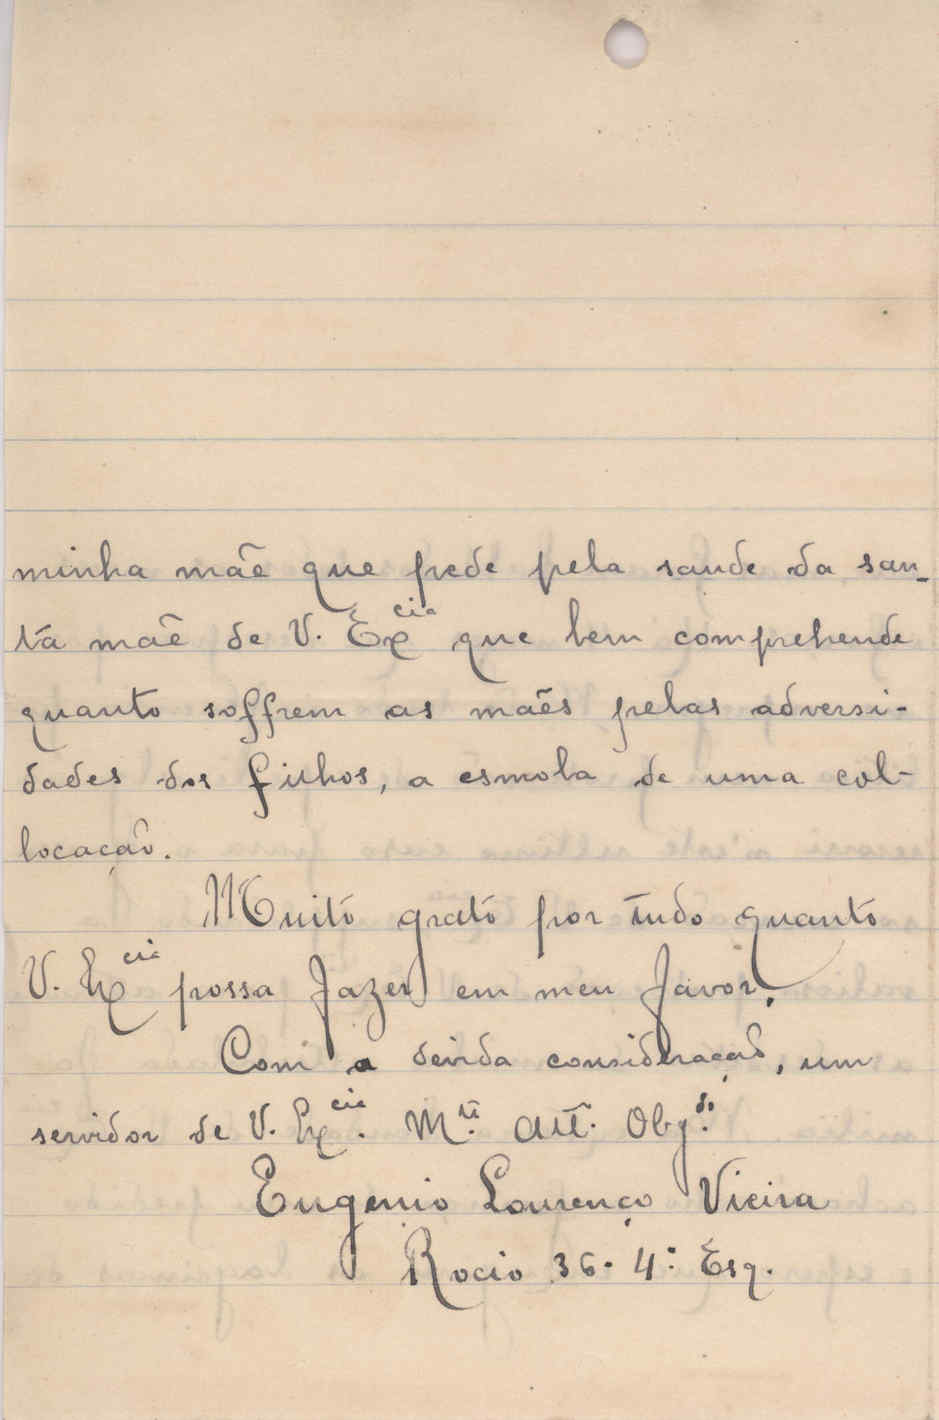 minha mãe que pede pela saude da san-
ta mãe de V. Excia que bem comprehende
quanto soffrem as mães pelas adversi-
dades dos filhos, a esmola de uma col-
locação.
Muito grato por tudo quanto
V. Excia possa fazer em meu favor.
Com a devida consideração, um
servidor de V. Excia. Mto. Att. Obgdo.
Eugenio Lourenço Vieira
Rocio 36. 4º Esq.